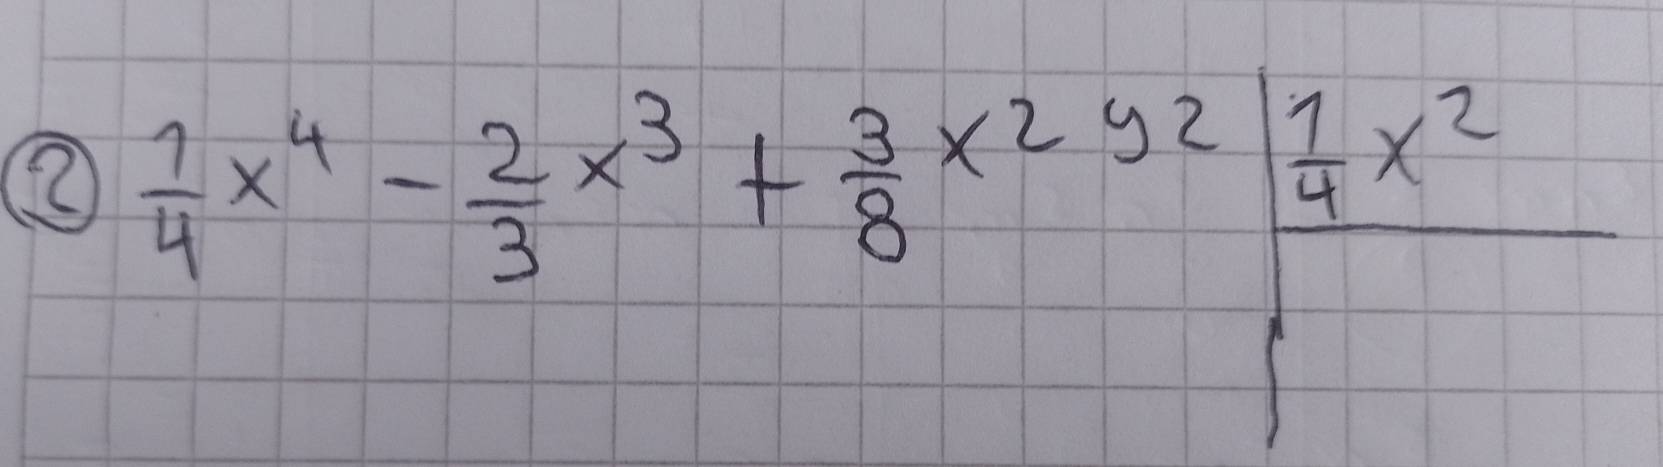 ② 1/4 x⁴ - 2/3 x³ + 3/8 x² y² | 1/4 x²